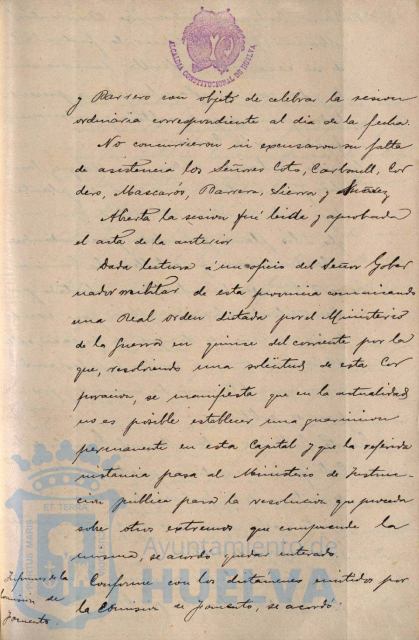 ALCALDIA CONSTITUCIONAL DE HUELVA
y Barrero con objeto de celebrar la sesion
ordinaria correspondiente al dia de la fecha.
No concurrieron ni excusaron su falta
de asistencia los Señores Coto, Carbonell, Cor
dero, Mascarós, Barrera, Sierra y Nuñez
Abierta la sesion fué leida y aprobada
el acta de la anterior
Dada lectura á un oficio del Señor Gober
nador militar de esta provincia comunicando
una Real orden dictada por el Ministerio
de la Guerra en quince del corriente por la
que, resolviendo una solicitud de esta Cor
poracion, se manifiesta que en la actualidad
no es posible establecer una guarnicion
permanente en esta Capital y que la referida
instancia pasa al Ministerio de Instruc-
cion pública para la resolucion que proceda
sobre otros extremos que comprende la
misma, se acordó quedar enterado.
Informes de la
Comision de
Fomento
Conforme con los dictamenes emitidos por
la Comision de Fomento, se acordó:
ET TERRA
PORTUS MARIS
Ayuntamiento de
HUELVA